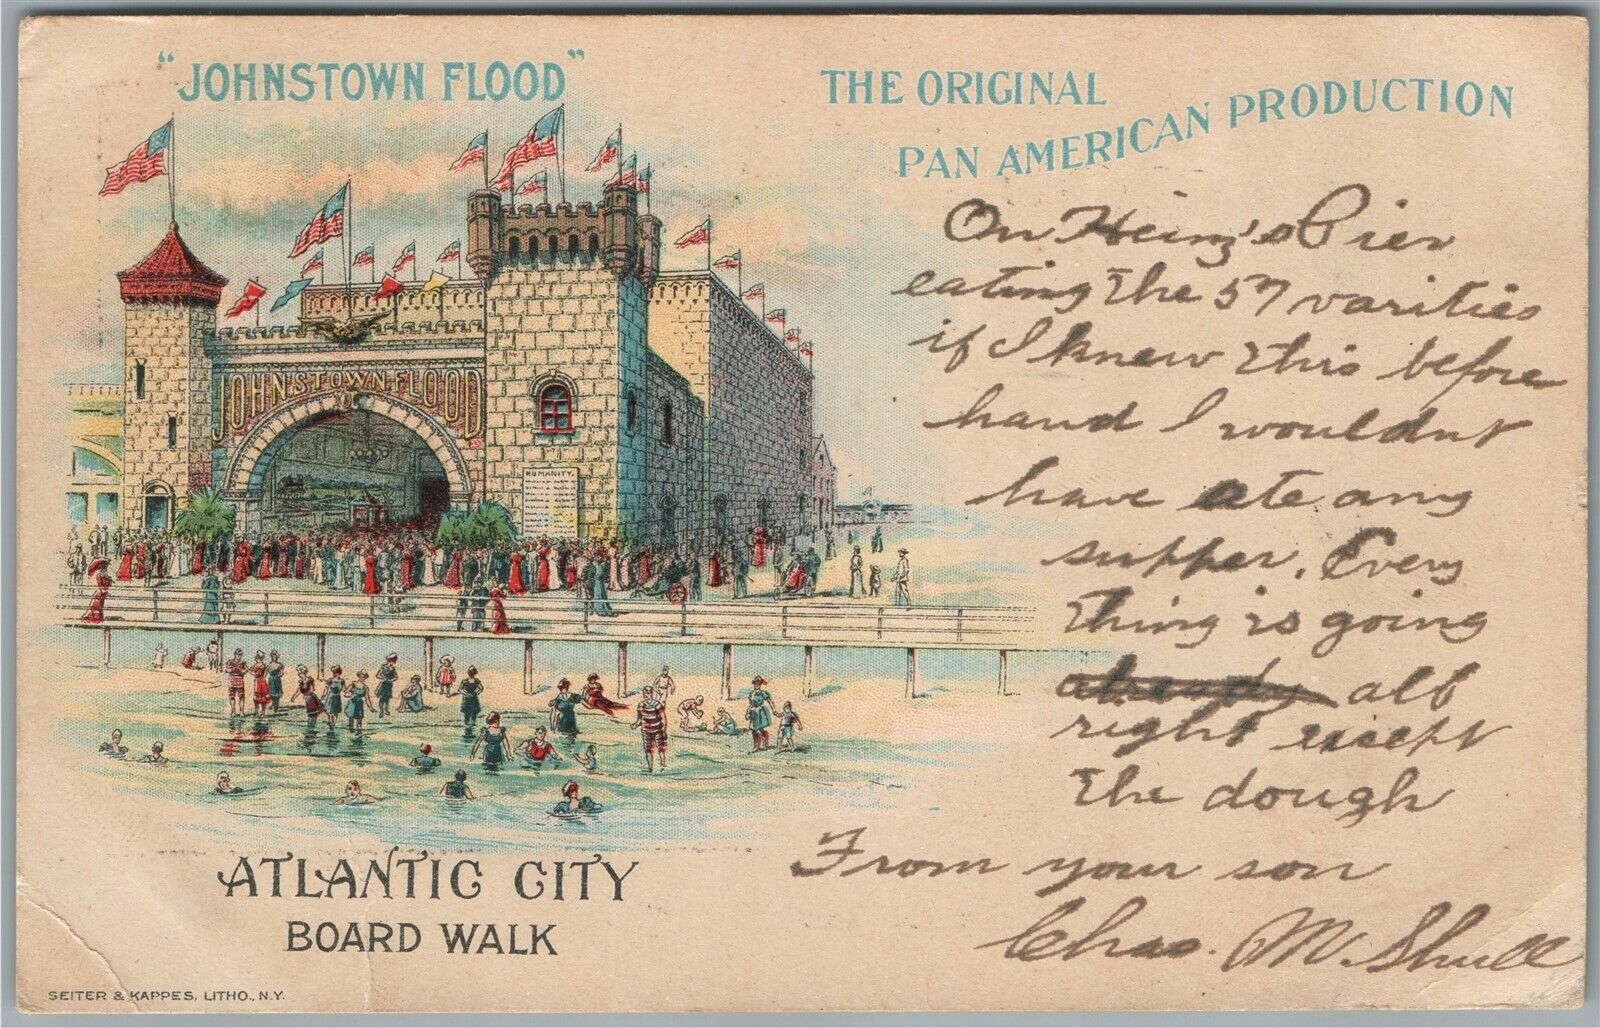 "JOHNSTOWN FLOOD"
THE ORIGINAL
PAN AMERICAN PRODUCTION
JOHNSTOWN FLOOD
HUMANITY.
ATLANTIC CITY
BOARD WALK
SEITER & KAPPES, LITHO., N.Y.
On Heinz's Pier
eating the 57 varities
if I knew this before
hand I wouldnt
have ate any
supper. Every
thing is going
already all
right except
the dough
From your son
Chas. M. Shull